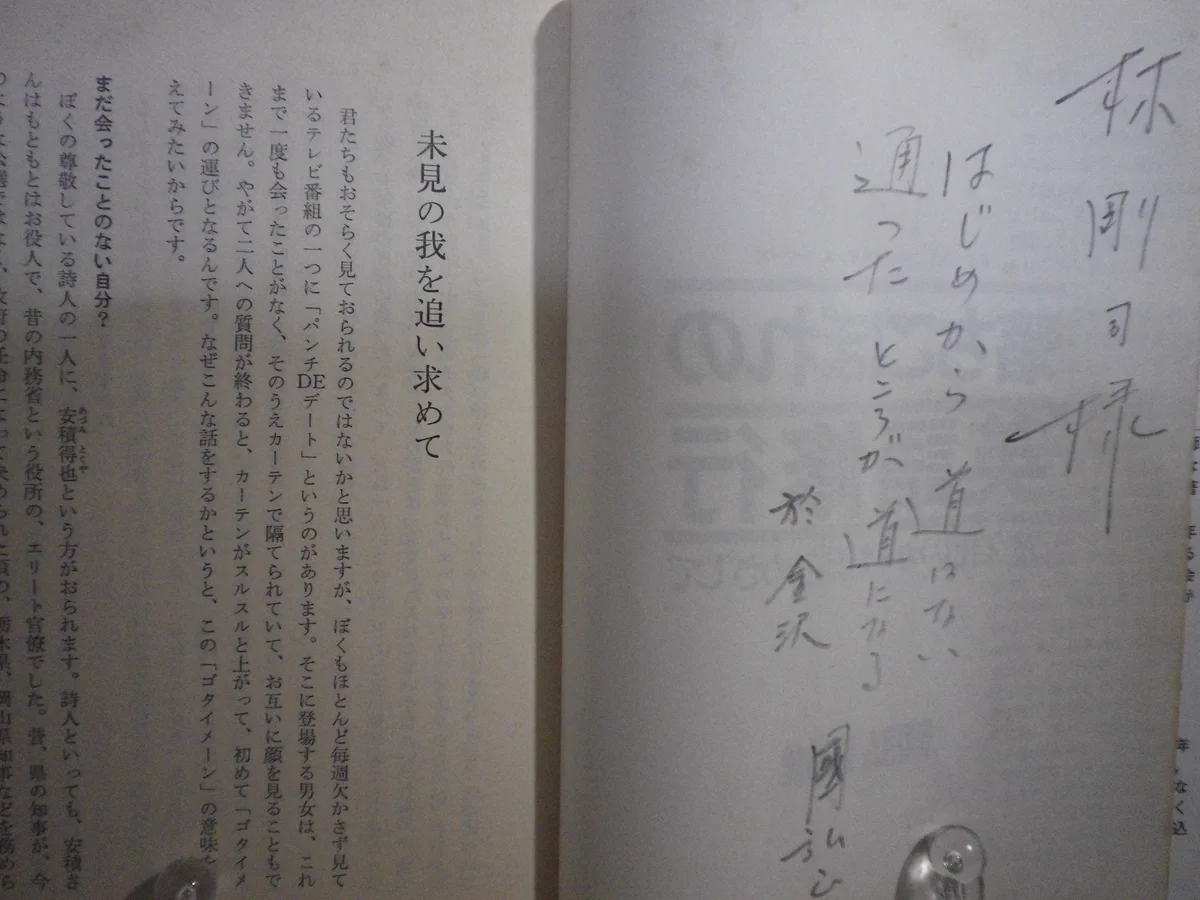 林剛司様
はじめから道はない
通ったところが道になる
於金沢
國弘正
未見の我を追い求めて
君たちもおそらく見ておられるのではないかと思いますが、ぼくもほとんど毎週欠かさず見て
いるテレビ番組の一つに「パンチDEデート」というのがあります。そこに登場する男女は、これ
まで一度も会ったことがなく、そのうえカーテンで隔てられていて、お互いに顔を見ることもで
きません。やがて二人への質問が終わると、カーテンがスルスルと上がって、初めて「ゴタイメ
ーン」の運びとなるんです。なぜこんな話をするかというと、この「ゴタイメーン」の意味を
えてみたいからです。
まだ会ったことのない自分?
ぼくの尊敬している詩人の一人に、安積得也という方がおられます。詩人といっても、安積さ
んはもともとはお役人で、昔の内務省という役所の、エリート官僚でした。昔、県の知事が、今